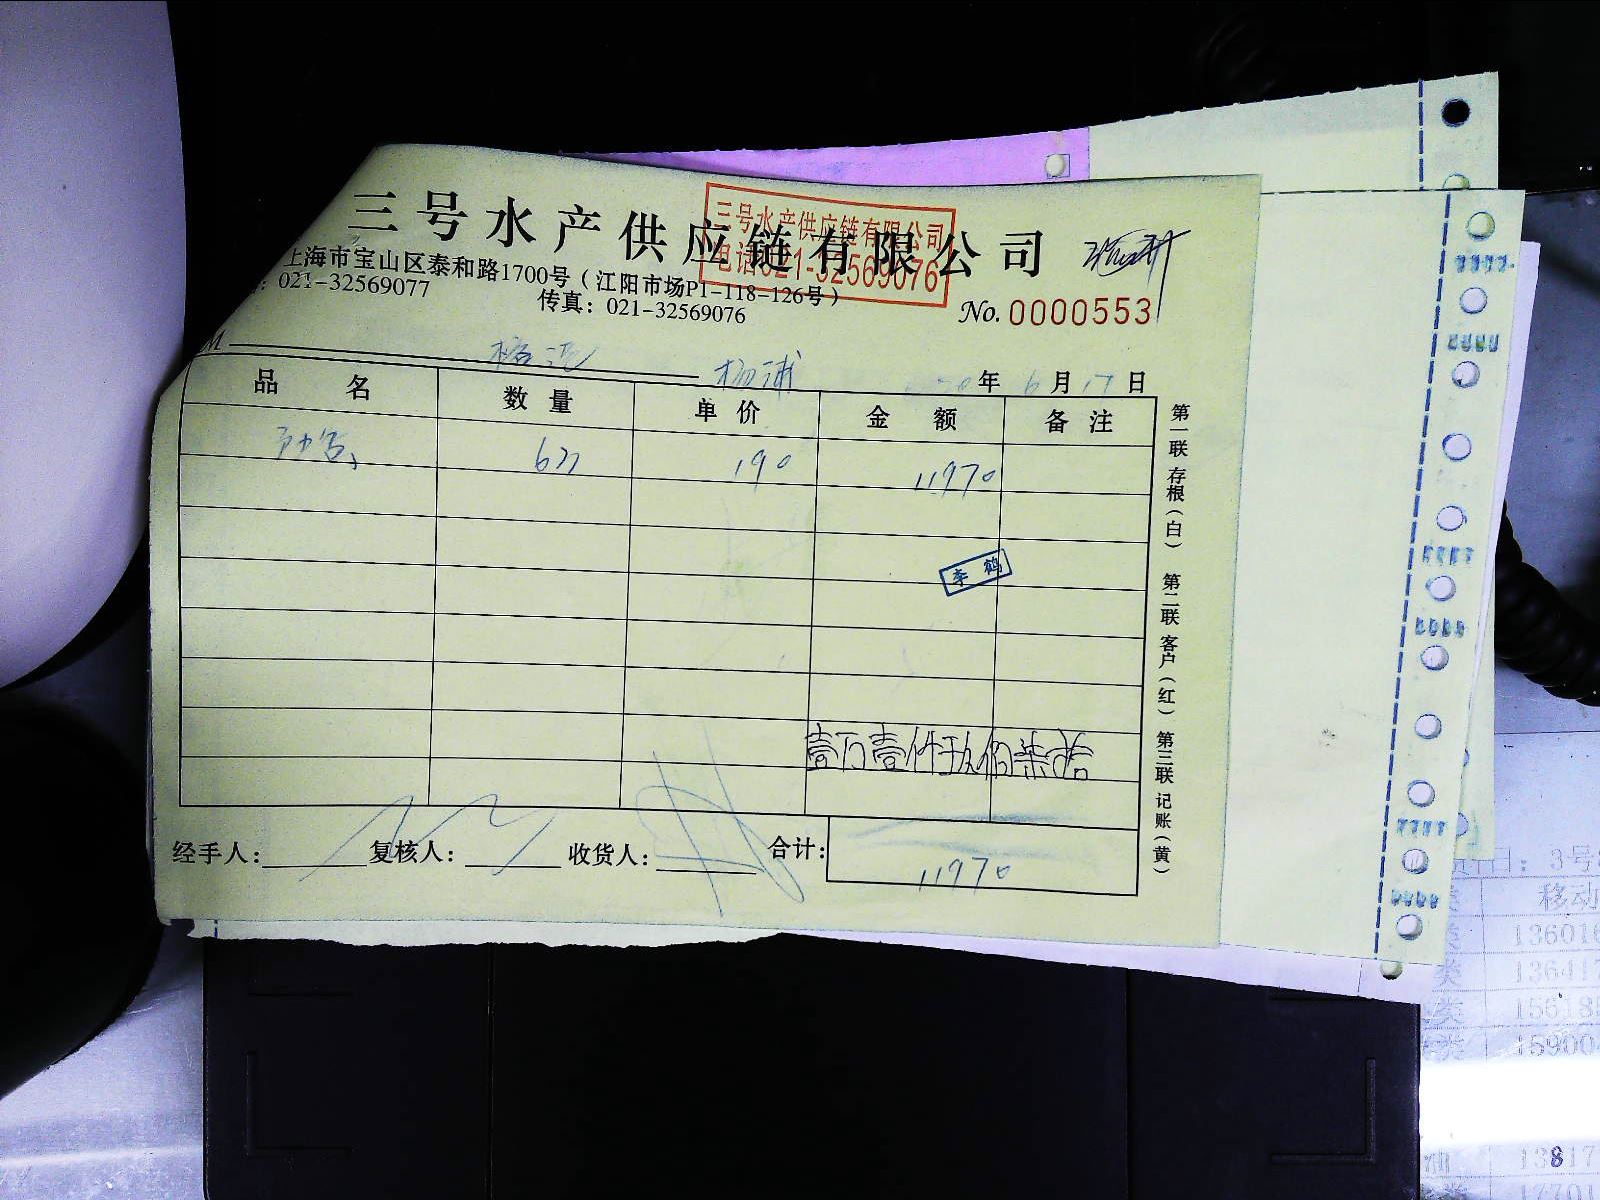 三号水产供应链有限公司
三号水产供应链有限公司
电话021-32569076
上海市宝山区泰和路1700号（江阳市场P1-118-126号）
021-32569077 传真：021-32569076
No. 0000553
M
杨浦 年 6 月 17 日
品名 数量 单价 金额 备注
63 190 11970
李鹤
壹万壹仟玖佰柒拾
经手人： 复核人： 收货人： 合计：
11970
第一联 存根（白） 第二联 客户（红） 第三联 记账（黄）
日：3号
移动
类 13601
类 13641
类 1561
类 15900